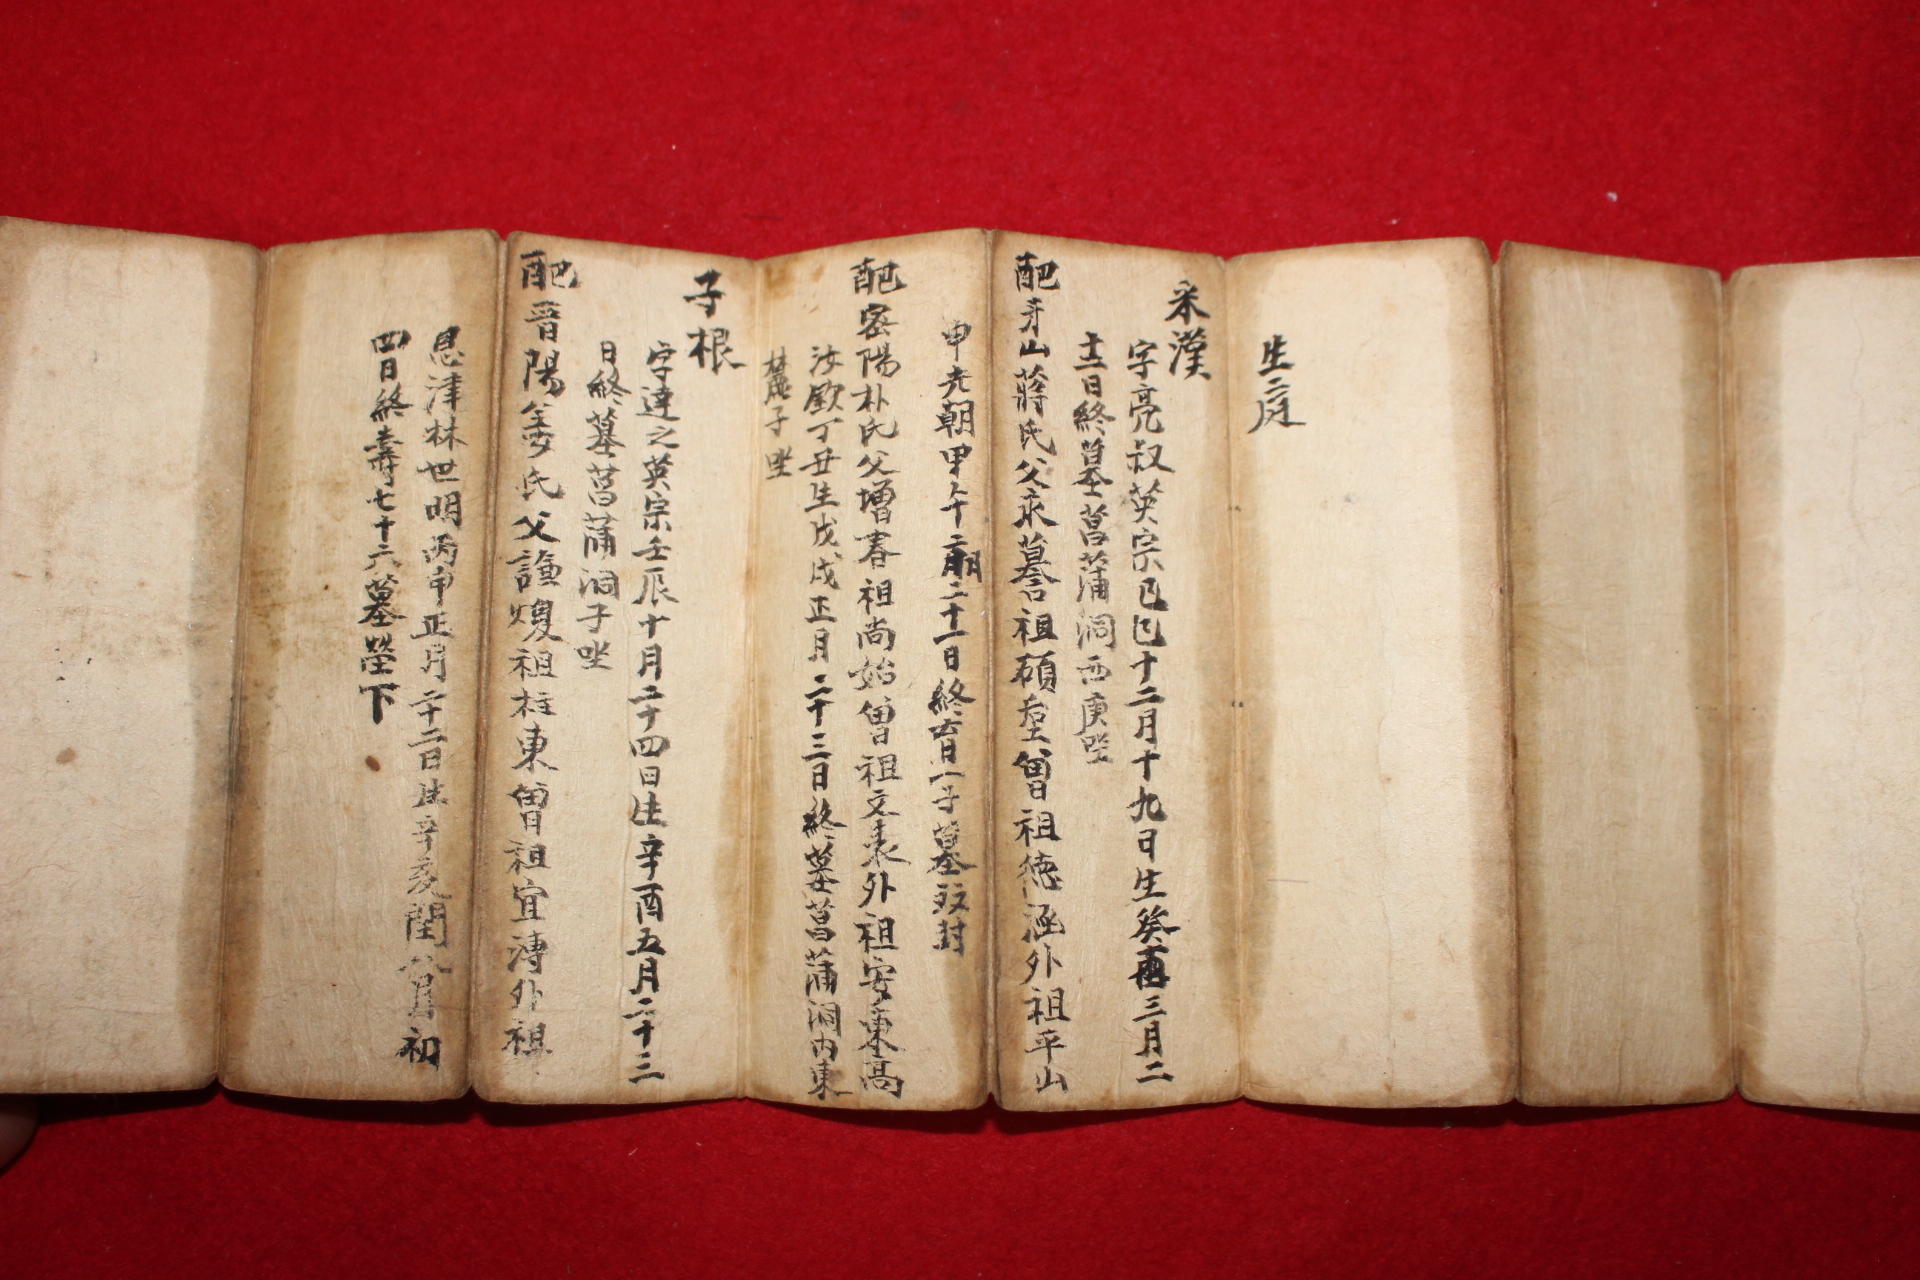 生庭
采漢
字亮叔英宗己巳十二月十九日生癸酉三月二
十二日終墓菖蒲洞西庚坐
配牙山蔣氏父永蓍祖碩奎曾祖德涵外祖平山
申光朝甲午二月二十一日終育一子墓雙封
配密陽朴氏父增春祖尚始曾祖文表外祖安東高
汝欽丁丑生戊戌正月二十三日終墓菖蒲洞內東
麓子坐
子根
字達之英宗壬辰十月二十四日生辛酉五月二十三
日終墓菖蒲洞子坐
配晋陽姜氏父謙煥祖柱東曾祖宜溥外祖
恩津林世明丙申正月二十二日生辛亥閏八月初
四日終壽七十六墓塋下